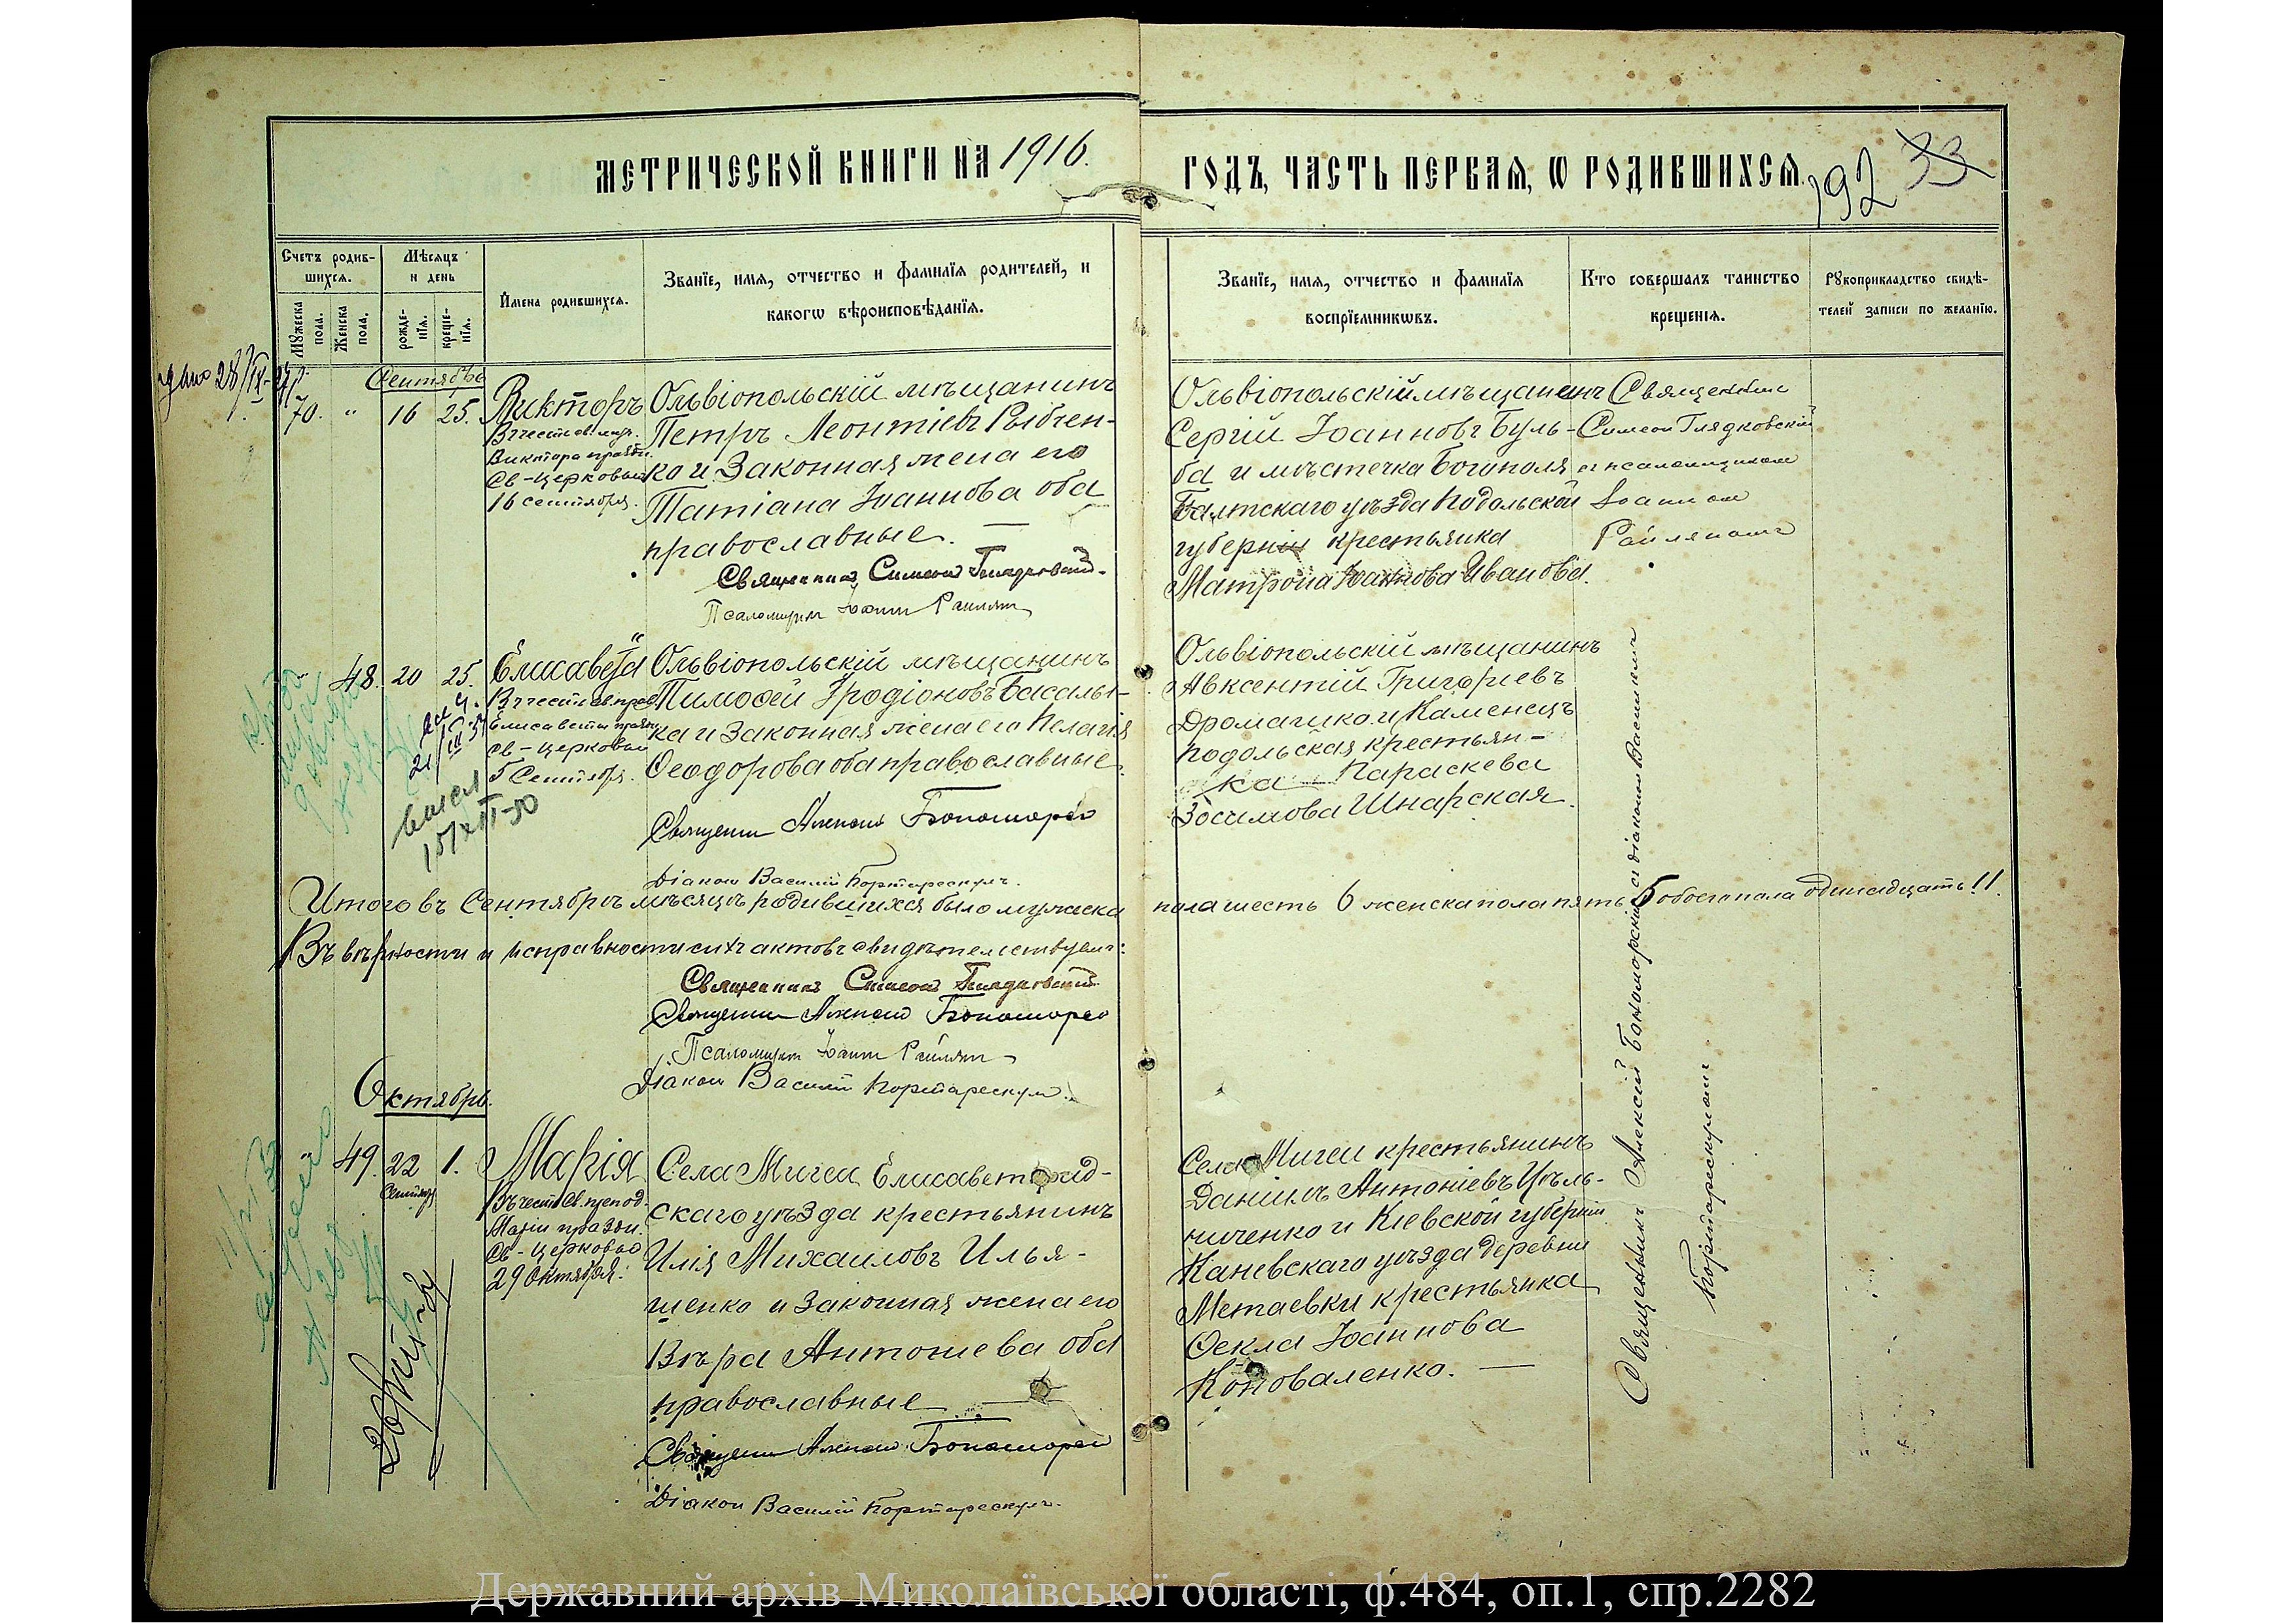 МЕТРИЧЕСКОЙ КНИГИ НА 1916.
ГОДЪ, ЧАСТЬ ПЕРВАЯ, Ѡ РОДИВШИХСЯ.
192 33
Счетъ родив-
шихся.
Мужеска пола.
Женска пола.
Мѣсяцъ
и день
рожде-
нія.
креще-
нія.
Имена родившихся.
Званіе, имя, отчество и фамилія родителей, и
какогѡ вѣроисповѣданія.
Званіе, имя, отчество и фамилія
воспріемникѡвъ.
Кто совершалъ таинство
крещенія.
Рꙋкоприкладство свидѣ-
телей записи по желанію.
Сентябрь
70. " 16 25.
Викторъ
Въ честь св. муч.
Виктора праздн.
Св-Церковью
16 сентября.
Ольвіопольскій мѣщанинъ
Петръ Леонтіевъ Рыбчен-
ко и Законная жена его
Татіана Іоаннова оба
православные. —
Священникъ Симеонъ Глядковскій
Псаломщикъ Іоаннъ Райлянъ
Ольвіопольскій мѣщанинъ
Сергій Іоанновъ Буль-
ба и мѣстечка Богополя
Балтскаго уѣзда Подольской
губерніи крестьянка
Матрона Іоаннова Иванова.
Священникъ
Симеонъ Глядковскій
съ псаломщикомъ
Іоанномъ
Райляномъ
" 48. 20 25.
Елисавета
Въ честь св. прав.
Елисаветы праздн.
Св-Церковью
5 Сентября.
Ольвіопольскій мѣщанинъ
Тимоѳей Иродіоновъ Басалы-
ка и Законная жена его Пелагія
Ѳеодорова оба православные.
Священникъ Алексій Бономорскій
Діаконъ Василій Портарескулъ.
Ольвіопольскій мѣщанинъ
Авксентій Григоріевъ
Дромашко и Каменецъ
Подольская крестьян-
ка Параскева
Зосимова Шнарская.
Священникъ Алексій Бономорскій съ діакономъ Василіемъ
Портарескуломъ
Итого въ Сентябрѣ мѣсяцѣ родившихся было мужеска пола шесть 6 женска пола пять 5 обоего пола одинадцать 11.
Въ вѣрности и исправности сихъ актовъ свидѣтельствуемъ:
Священникъ Симеонъ Глядковскій
Священникъ Алексій Бономорскій
Псаломщикъ Іоаннъ Райлянъ
Діаконъ Василій Портарескулъ.
Октябрь.
" 49. 22 1.
Сентяб.
Марія
Въ честь Св. препод.
Маріи праздн.
Св-Церковью
29 Октября.
Села Мигеи Елисаветград-
скаго уѣзда крестьянинъ
Илія Михаиловъ Илья-
шенко и Законная жена его
Вѣра Антониева оба
православные —
Священникъ Алексій Бономорскій
Діаконъ Василій Портарескулъ.
Села Мигеи крестьянинъ
Даніилъ Антоніевъ Цѣль-
ниченко и Кіевской губерніи
Каневскаго уѣзда деревни
Метаевки крестьянка
Ѳекла Іоаннова
Коноваленко. —
Державний архів Миколаївської області, ф.484, оп.1, спр.2282